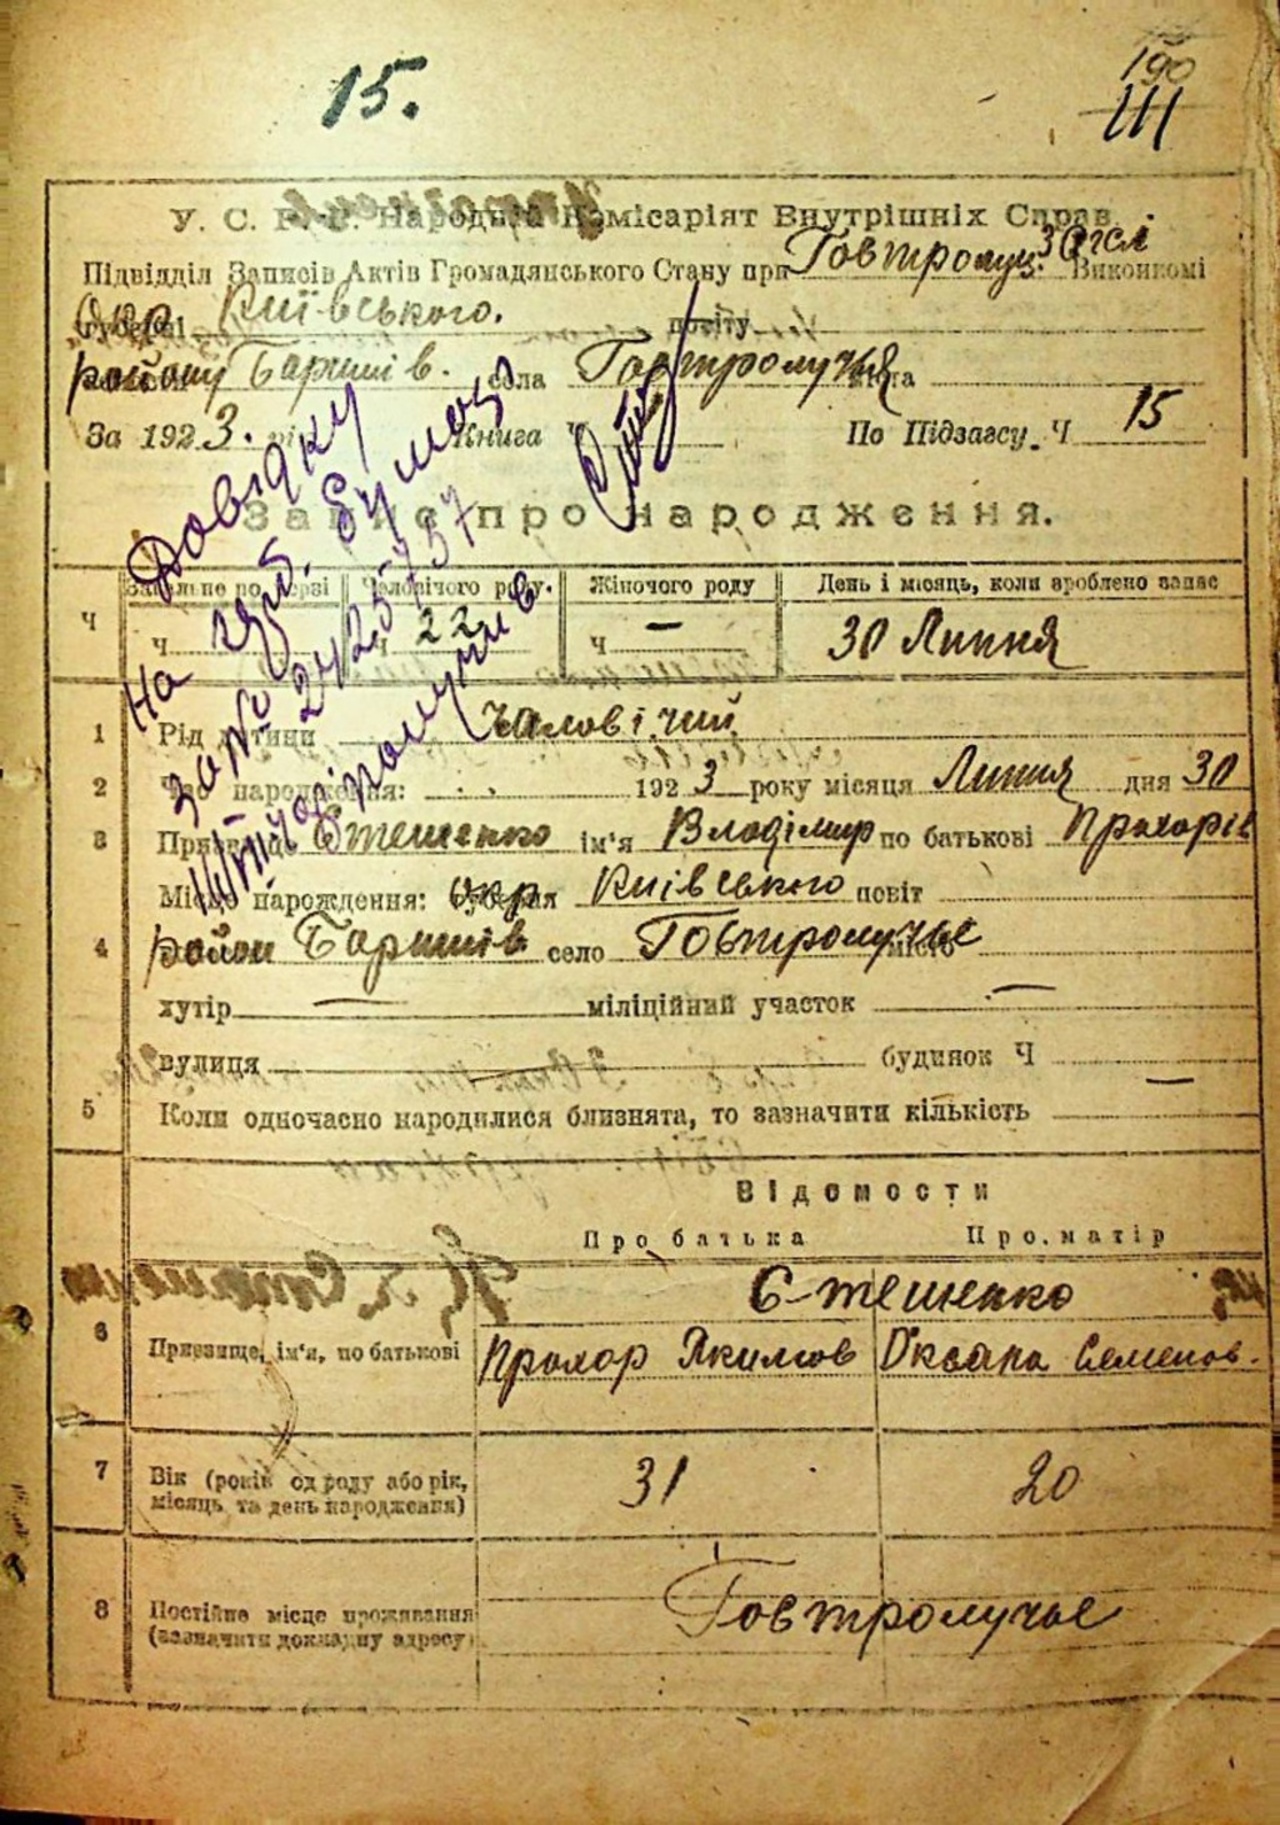 15.
190
111
У. С. Р. Р. Народній Комісаріят Внутрішніх Справ.
Підвідділ Записів Актів Громадянського Стану при Говтролуч. Загсі Виконкомі
Окр Київського. повіту
району Баришів. села Говтролуччя міста
За 1923. рік Книга Ч По Підзагсу Ч 15
Запис про народження.
Довідку
на
за № 2425757
Загальне по Чоловічого роду. Жіночого роду День і місяць, коли зроблено запис
Ч Ч Ч 22 Ч — 30 Липня
1 Рід дитини Чаловічий
2 Час народження: 1923 року місяця Липня дня 30
3 Призвище Єтешенко ім'я Владімир по батькові Прохорів
4 Місце народження: Окр Київського повіт
район Баришів село Говтролучьє місто
хутір — міліційний участок —
вулиця — будинок Ч —
5 Коли одночасно народилися близнята, то зазначити кількість
Відомости
Про батька Про матір
Єтешенко
6 Призвище, ім'я, по батькові Прохор Якимов Оксана Семенов.
7 Вік (років од роду або рік, місяць та день народження) 31 20
8 Постійне місце проживання (зазначити докладну адресу) Говтролучьє